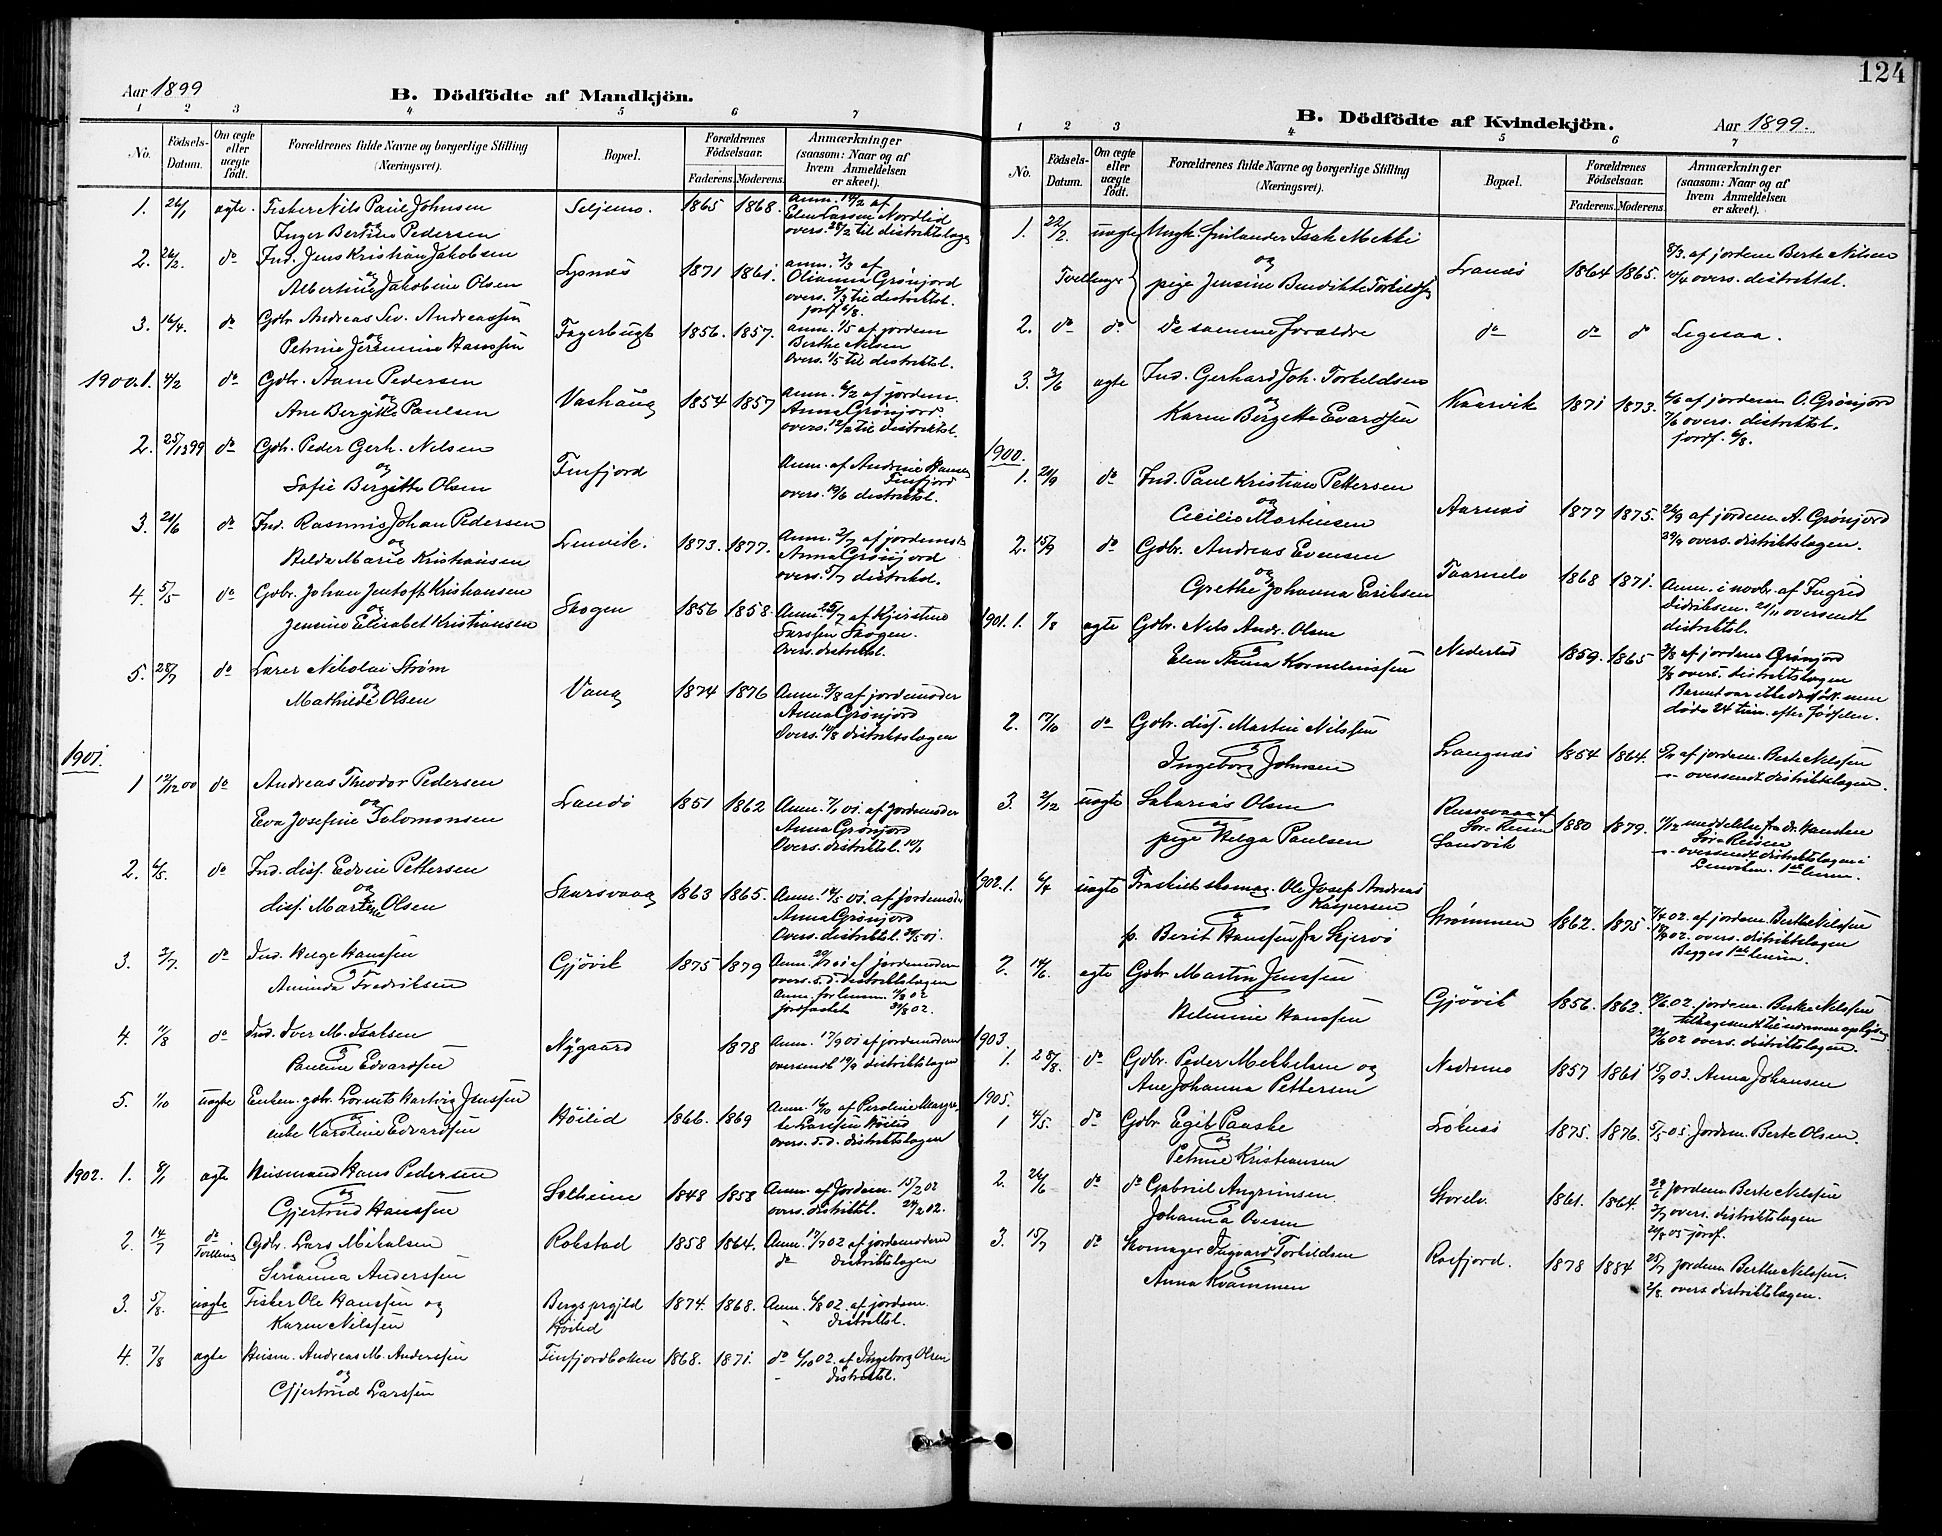 Aar 1899
B. Dödfödte af Mandkjön.
1 2 3 4 5 6 7
No. Födsels-Datum. Om ægte eller uægte födt. Forældrenes fulde Navne og borgerlige Stilling (Næringsvei). Bopæl. Forældrenes Födselsaar. Faderens. Moderens. Anmærkninger (saasom: Naar og af hvem Anmeldelsen er skeet).
1. 26/1 ægte. Fisker Nils Paul Johnsen
og
Inger Bertine Pedersen
Seljemo. 1865 1868.
overs. 28/2 til distriktslæg
2. 26/2. do Ind. Jens Kristian Jakobsen
og
Albertine Jakobine Olsen
Lysnæs 1871 1861.
anm. 3/3 af
Olianna Grønjord
overs. 3/3 til distriktsl.
3. 16/4. do Gbr. Andreas Sev. Andreassen
og
Petrine Jeremine Hanssen
Fagerbugt 1856. 1857.
anm. 1/5 af jordem
Berthe Nilsen
Overs. 1/5 til distriktsl.
1900. 1. 4/2 do Gbr. Aane Pedersen
og
Ane Bergitte Paulsen
Vashaug 1854 1857
Anm. 6/2 af jordem.
Anna Grønjord
overs. 12/2 til distriktsl.
2. 25/1 1899 do Gbr. Peder Gerh. Nilsen
og
Sofie Bergitte Olsen
Finfjord
Anm. af Andrine Hansen
Finfjord
overs. 19/6 distriktsl.
3. 21/6 do Ind. Rasmus Johan Pedersen
og
Hilda Marie Kristiansen
Lenvik. 1873. 1877.
Anm. 2/7 af jordemdr
Anna Grønjord
overs. 5/7 distriktsl.
4. 5/5 do Gbr. Johan Jentoft Kristiansen
og
Jensine Elisabet Kristiansen
Skogen 1856 1858.
Anm. 25/7 af Kjerstine
Larssen Skogen.
Overs. distriktsl.
5. 28/7 do Lærer Nikolai Strøm
og
Mathilde Olsen
Vang 1874 1876
Anm. 3/8 af jordemoder
Anna Grønjord
Overs. 14/8 distriktslægen
1901.
1 12/12 00 do Andreas Theodor Pedersen
og
Eva Josefine Salomonsen
Landø 1851 1862
Anm. 7/1 01. af jordemoder
Anna Grønjord
Overs. distriktsl. 10/1
2. 6/5. do Ind. disp. Edvin Pettersen
og
disp. Martine Olsen
Skarsvaag 1863 1865.
Anm. 14/5 01. af jordemoder
Anna Grønjord
Overs. distriktsl. 20/5 01.
3. 3/7. do Ind. Helge Hanssen
og
Aminda Fredriksen
Gjövik 1875 1879
Anm. 20/7 01 af jordemoderen
overs. s.d. distriktslægen
jordfæstet 31/8 02.
4. 11/8 do Ind. Iver M. Isaksen
og
Pauline Edvardsen
Nygaard 1878
Anm. 17/9 01 af jordemoderen
oversendt 19/9 distriktslægen
5. 1/10 uægte Enkem. gbr. Lornts Hartvig Jenssen
og
enke Karoline Edvardsen
Höilid 1866. 1869
Anm. 16/10 af Peroline Margre-
te Larssen Höilid
overs. s.d. distriktslægen
1902. 1. 8/1 ægte Husmand Hans Pedersen
og
Gjertrud Hanssen
Solheim 1848 1858
Anm. af Jordem. 15/2 02
overs. distriktsl. 24/2 02.
2. 14/7 do Tvilling Gbr. Lars Mikalsen
og
Serianna Anderssen
Rokstad 1858 1864.
Anm. 17/7 02 af jordemoderen
do distriktslægen
3. 5/8. uægte Fisker Ole Hanssen og
Karen Nilssen
Bergs prgjld
Höilid
1874. 1868.
Anm. 6/8 02. af jordem.
" distriktsl.
4. 7/8 ægte Husm. Andreas M. Anderssen
og
Gjertrud Larssen
Finfjordbotten 1868. 1871.
do 6/10 02. af Ingeborg Olsen
" distriktsl.

124
B. Dödfödte af Kvindekjön. Aar 1899.
1 2 3 4 5 6 7
No. Födsels-Datum. Om ægte eller uægte födt. Forældrenes fulde Navne og borgerlige Stilling (Næringsvei). Bopæl. Forældrenes Födselsaar. Faderens. Moderens. Anmærkninger (saasom: Naar og af hvem Anmeldelsen er skeet).
1. 22/2. uægte Ungk. finlænder Isak Mekki
og
Tvillinger pige Jensine Bendikte Torkildsen
Lanæs 1864 1865.
8/3. af jordem Berte Nilsen
10/4 overs. distriktsl.
2. do do. De samme forældre do do do Ligesaa.
3. 3/6 ægte Ind. Gerhard Joh. Torkildsen
og
Karen Bergette Evardsen
Kaarvik 1871 1873.
6/6 af jordem O. Grønjord
7/6 overs. distriktsl.
jordf. 6/8.
1900.
1. 20/9 do Ind. Paul Kristian Pettersen
og
Cecilie Martinsen
Aarnæs 1877 1875.
26/9 af jordem A. Grønjord
29/9 overs. distriktslægen.
2. 15/9 do Gbr. Andreas Evensen
og
Grethe Johanna Eriksen
Taarnelv 1868 1871.
Anm. i novbr. af Ingrid
Didriksen. 21/11 oversendt
distriktsl.
1901. 1. 1/8 ægte Gbr. Nils Andr. Olsen
og
Elen Anna Korneliussen
Nederlid 1859. 1865
3/8 af jordem Grønjord
7/8 overs. distriktslægen
Barnet var ikke dødfödt, men
døde 24 tim. efter födselen.
2. 17/10 do Gbr. disp. Martin Nilssen
og
Ingeborg Johnsen
Langnæs 1854 1864.
af jordem. Berte Nilssen
" oversendt distriktslægen.
3. 2/12 uægte Sakarias Olsen
og
pige Helga Paulsen
Sandvik
1880 1879.
oversendt distriktslægen i
Lenviken.
1902. 1. 6/4 uægte Fraskilt skomag. Ole Josef Andreas
Kaspersen
og
p. Berit Hanssen fra Skjervö
Strømmen 1862. 1875.
7/4 02. af jordem. Berthe Nilssen
overs. distriktslægen
2. 14/6. ægte Gbr Martin Jenssen
og
Helmine Hanssen
Gjövik 1856. 1862.
jordem. Berte Nilssen
20/6 02 overs. distriktslægen.
1903.
1. 28/8. do Gbr. Peder Mikkelsen og
Ane Johanna Pettersen
Nedremo 1857 1861
15/9 03. Anna Johansen
1905.
1 4/5. do Gbr. Egil Paaske
og
Petrine Kristiansen
Løknæs 1875. 1876.
5/5 05 Jordem. Berte Olsen.
2. 26/6 do do Gabriel Angrimsen
Johanna Ovesen
Storelv. 1861. 1864.
29/6 Jordem Berte Nilssen
3/7 overs. distriktslægen
20/8 05 jordf.
3. 15/7 do Skomager Ingvard Torkildsen
og
Anna Kvammen
Rosfjord. 1878 1884
25/7 Jordem Berthe Nilssen.
2/8. overs distriktslægen.